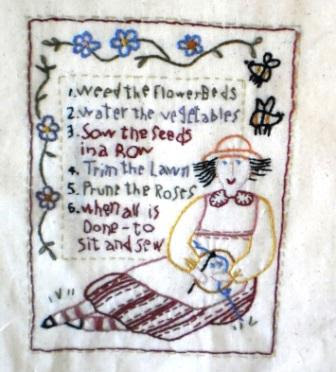 1. weed the flowerBeds
2. water the vegetables
3. Sow the seeds
in a Row
4. Trim the Lawn
5. Prune the Roses
6. when all is
Done - to
sit and sew